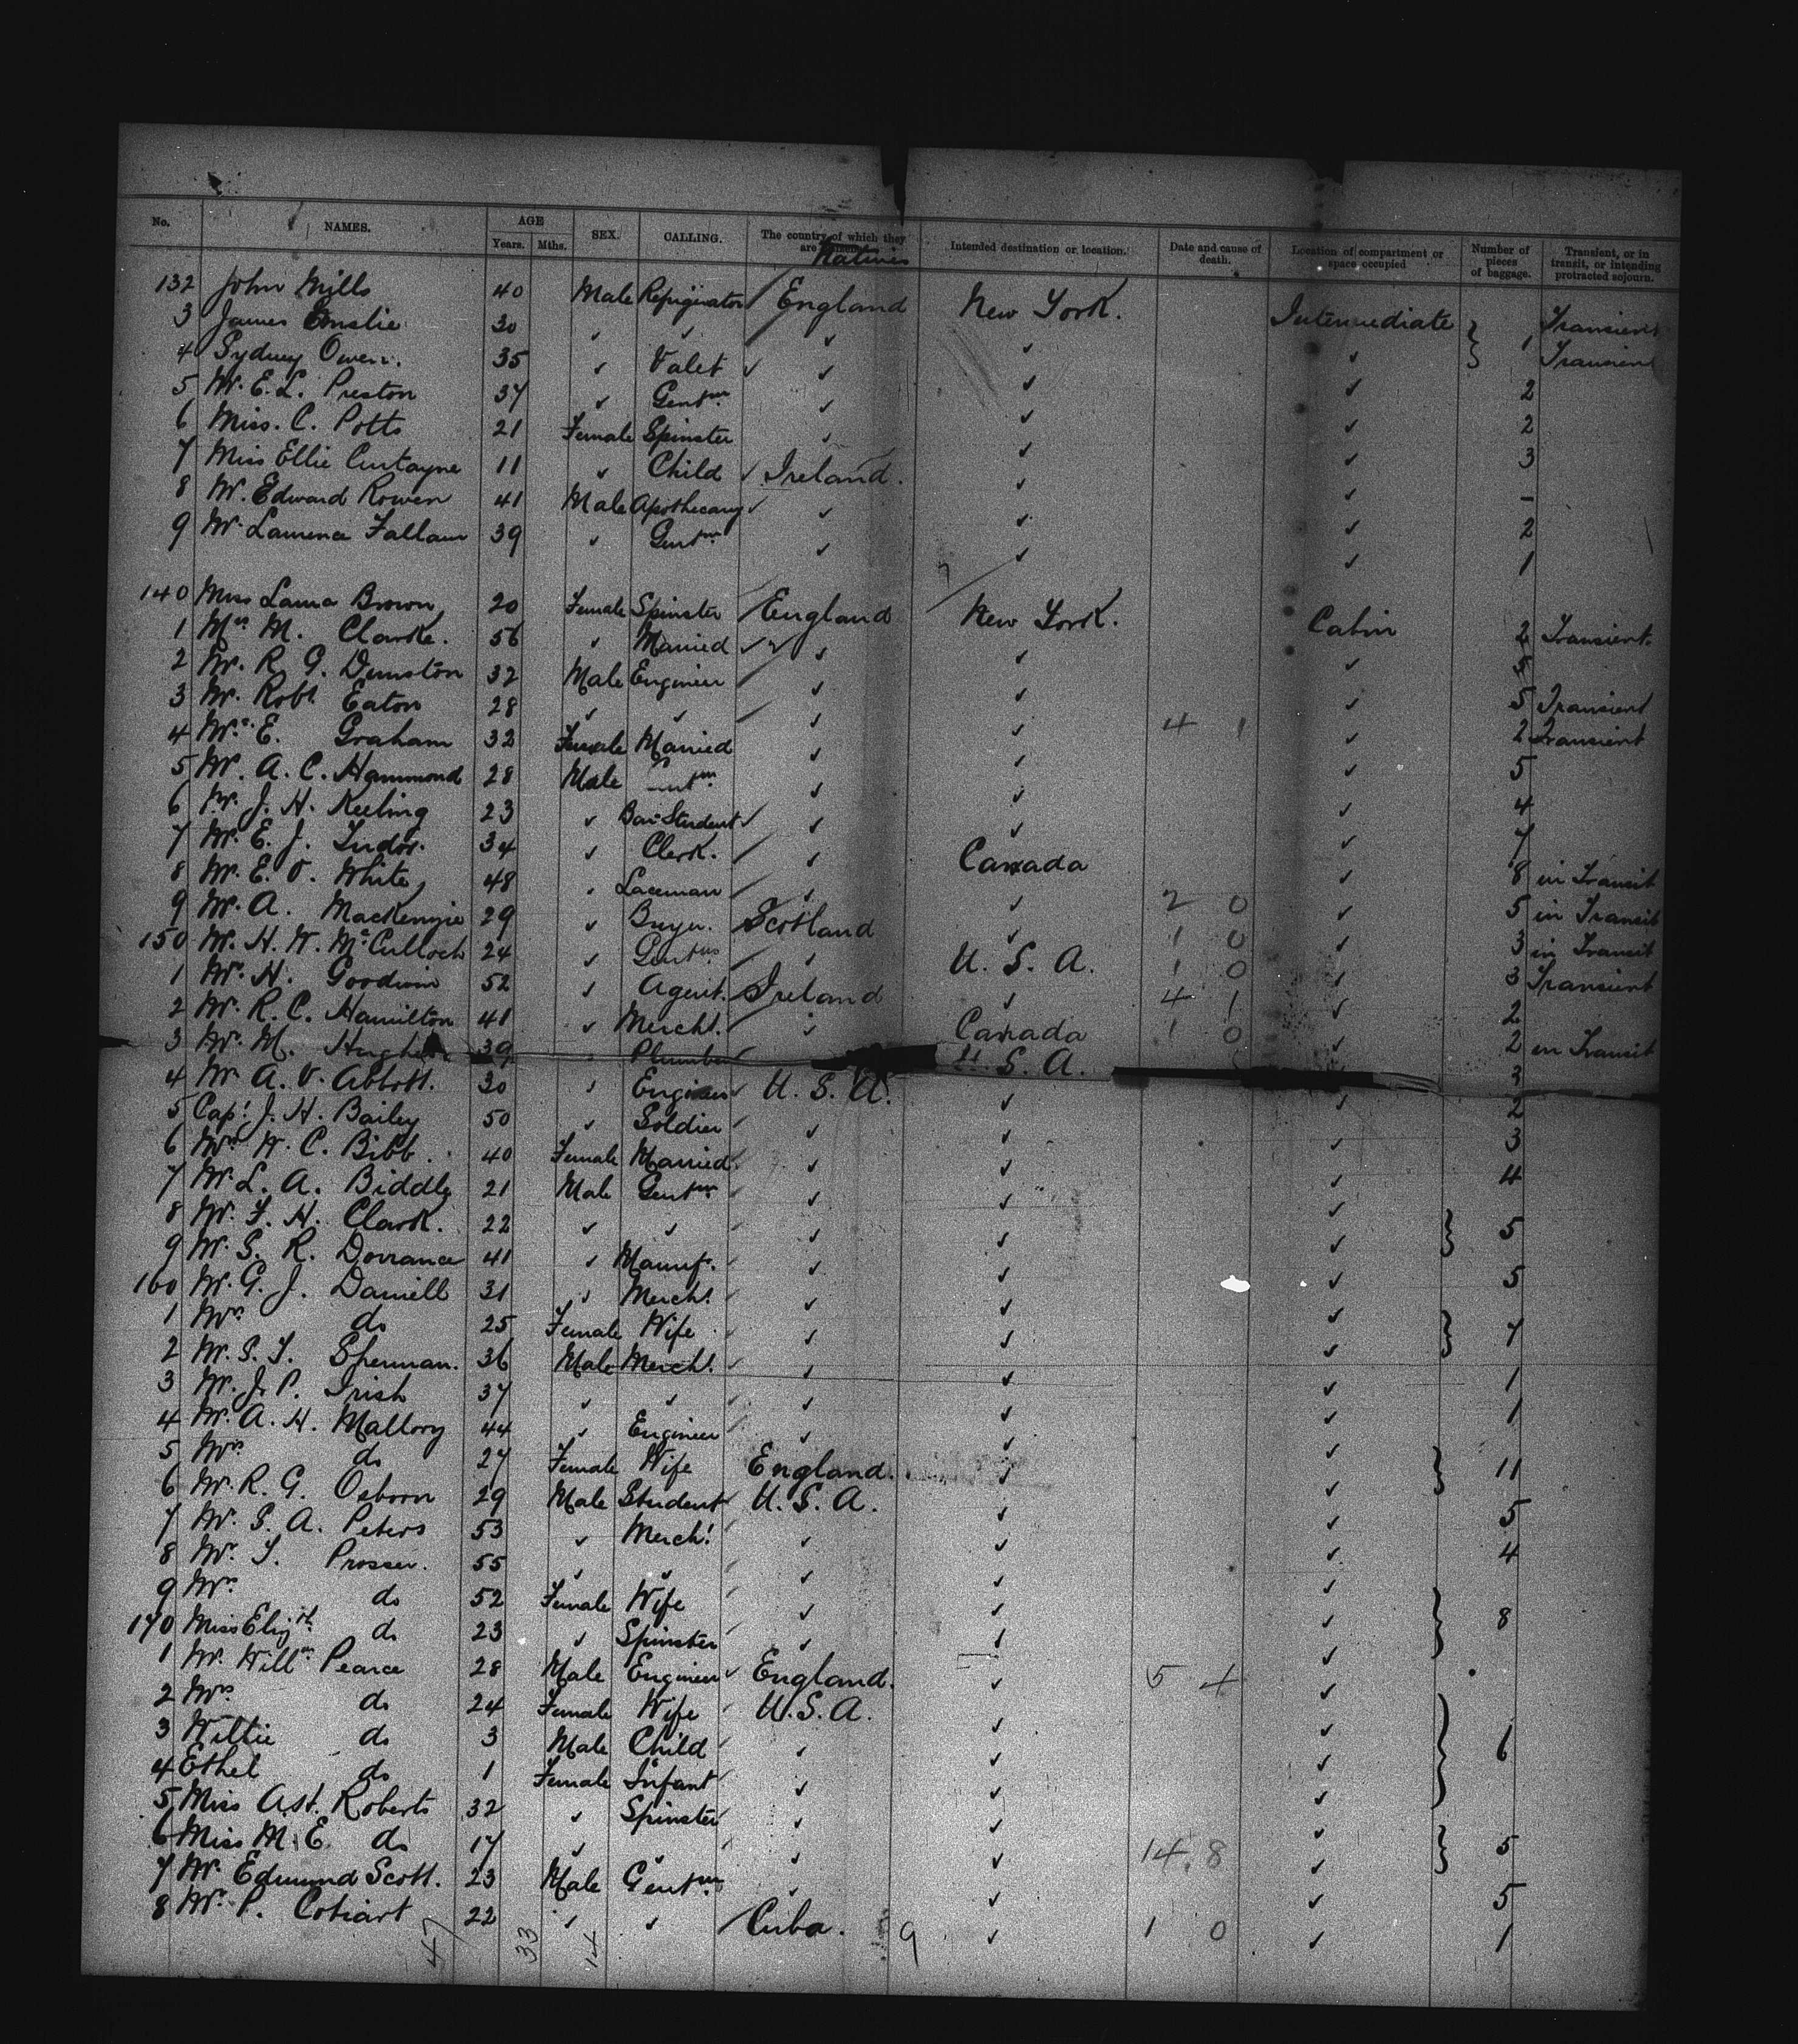 No. NAMES. AGE Years. Mths. SEX. CALLING. The country of which they are Natives Intended destination or location. Date and cause of death. Location of compartment or space occupied Number of pieces of baggage. Transient, or in transit, or intending protracted sojourn.
132 John Mills 40 Male Refrigirator England New York. Intermediate Transient
3 James 30 ✓ ✓ ✓ ✓ ✓ } 1 Transient
4 Sydney Owen. 35 ✓ Valet ✓ ✓ ✓ ✓
5 Mr. E. L. Preston 37 ✓ Gentm ✓ ✓ ✓ 2
6 Miss. C. Potts 21 Female Spinster ✓ ✓ ✓ 2
7 Miss Ellie Curtayne 11 ✓ Child ✓ Ireland. ✓ ✓ 3
8 Mr. Edward Rowen 41 Male Apothecary ✓ ✓ ✓ ✓ –
9 Mr. Laurence Fallam 39 ✓ Gentm ✓ ✓ ✓ 2
1
140 Miss Laura Brown 20 Female Spinster England New York. Cabin 2 Transient.
1 Mrs M. Clarke. 56 ✓ Married ✓ ✓ ✓ ✓ ✓ 5
2 Mr. R. G. Dunston 32 Male Engineer ✓ ✓ ✓ 5 Transient
3 Mr. Robt Eaton 28 ✓ ✓ ✓ ✓ 4 1 ✓ 2 Transient
4 Mrs E. Graham 32 Female Married ✓ ✓ ✓ 5
5 Mr. A. C. Hammond 28 Male Gentm ✓ ✓ ✓ 4
6 Mr. J. H. Keeling 23 ✓ Bar Student ✓ ✓ ✓ ✓ 7
7 Mr. E. J. 34 ✓ Clerk. ✓ Canada ✓ 8 in Transit
8 Mr. E. O. White 48 ✓ Laceman ✓ ✓ 2 0 ✓ 5 in Transit
9 Mr. A. MacKenzie 29 ✓ Buyer. Scotland ✓ 1 0 ✓ 3 in Transit
150 Mr. H. W. McCulloch 24 ✓ Gentm ✓ U. S. A. 1 0 ✓ 3 Transient
1 Mr. H. Goodwin 52 ✓ Agent. Ireland ✓ 4 1 ✓ 2
2 Mr. R. C. Hamilton 41 ✓ Mercht. ✓ Canada 1 0 ✓ 2 in Transit
3 Mr. M. 39 ✓ Plumber U. S. A. 3
4 Mr A. V. Abbott. 30 ✓ Engineer ✓ U. S. A. ✓ ✓ 2
5 Capt. J. H. Bailey 50 ✓ Soldier ✓ ✓ ✓ 3
6 Mrs W. C. Bibb. 40 Female Married ✓ ✓ ✓ 4
7 Mr. L. A. Biddle 21 Male Gentm ✓ ✓ ✓
8 Mr. F. H. Clark. 22 ✓ ✓ ✓ ✓ ✓ } 5
9 Mr. S. R. Dorrance 41 ✓ Manuf. ✓ ✓ ✓ 5
160 Mr. G. J. Daniell 31 ✓ Mercht. ✓ ✓ ✓
1 Mrs do 25 Female Wife ✓ ✓ ✓ } 7
2 Mr. S. T. Sherman. 36 Male Mercht. ✓ ✓ ✓ 1
3 Mr. J. P. Irish 37 ✓ ✓ ✓ ✓ ✓ 1
4 Mr. A. H. Mallory 44 ✓ Engineer ✓ ✓ ✓
5 Mrs do 27 Female Wife England. ✓ ✓ } 11
6 Mr. R. G. Osborn 29 Male Student U. S. A. ✓ ✓ 5
7 Mr. S. A. Peters 53 ✓ Mercht. ✓ ✓ ✓ 4
8 Mr. T. Prosser. 55 ✓ ✓ ✓ ✓ ✓
9 Mrs do 52 Female Wife ✓ ✓ ✓ } 8
170 Miss Elizth do 23 ✓ Spinster ✓ ✓ ✓
1 Mr. Willm Pearce 28 Male Engineer ✓ England. ✓ 5 4 ✓
2 Mrs do 24 Female Wife U. S. A. ✓ ✓
3 Willie do 3 Male Child ✓ ✓ ✓ } 6
4 Ethel do 1 Female Infant ✓ ✓ ✓
5 Miss A. St. Roberts 32 ✓ Spinster ✓ ✓ ✓
6 Miss M. E. do 17 ✓ ✓ ✓ ✓ 14. 8 ✓ } 5
7 Mr. Edmund Scott. 23 Male Gentm ✓ ✓ ✓ 5
8 Mr. P. Cotiart 22 ✓ ✓ Cuba. 9 ✓ 1 0 ✓ 1
47 33 14